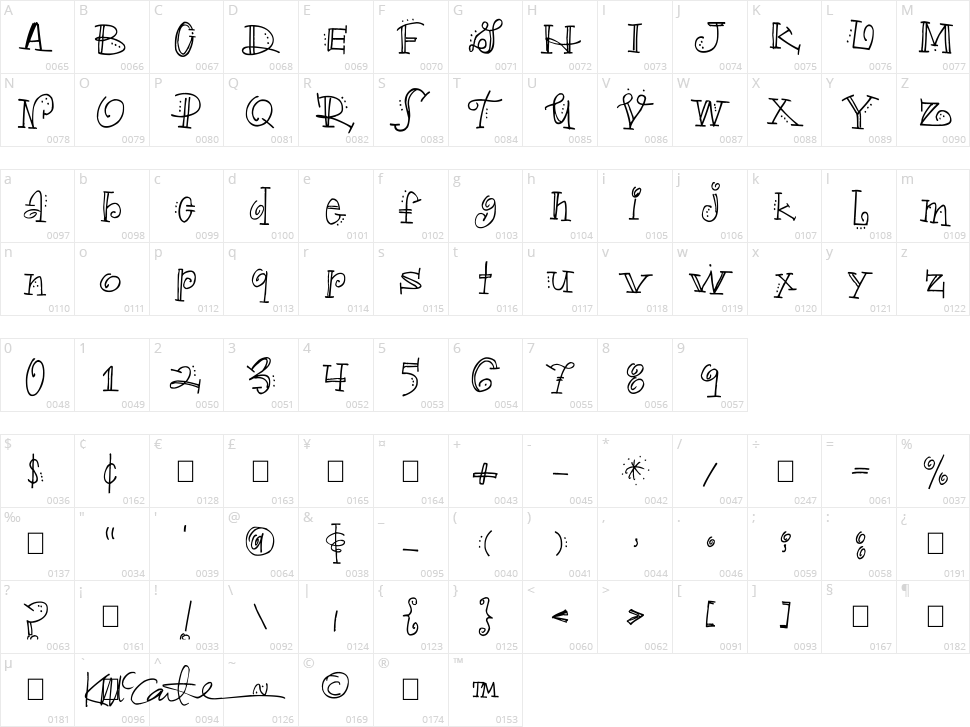 A B C D E F G H I J K L M
A B C D E F G H I J K L M
0065 0066 0067 0068 0069 0070 0071 0072 0073 0074 0075 0076 0077
N O P Q R S T U V W X Y Z
N O P Q R S T U V W X Y Z
0078 0079 0080 0081 0082 0083 0084 0085 0086 0087 0088 0089 0090
a b c d e f g h i j k l m
a b c d e f g h i j k L m
0097 0098 0099 0100 0101 0102 0103 0104 0105 0106 0107 0108 0109
n o p q r s t u v w x y z
n o p q r s t u v w x y z
0110 0111 0112 0113 0114 0115 0116 0117 0118 0119 0120 0121 0122
0 1 2 3 4 5 6 7 8 9
0 1 2 3 4 5 6 7 8 9
0048 0049 0050 0051 0052 0053 0054 0055 0056 0057
$ ¢ € £ ¥ ¤ + - * / ÷ = %
$ ¢ + - * / = %
0036 0162 0128 0163 0165 0164 0043 0045 0042 0047 0247 0061 0037
‰ " ' @ & _ ( ) , . ; : ¿
" ' @ & _ ( ) , . ; :
0137 0034 0039 0064 0038 0095 0040 0041 0044 0046 0059 0058 0191
? ¡ ! \ | { } < > [ ] § ¶
? ! \ | { } < > [ ]
0063 0161 0033 0092 0124 0123 0125 0060 0062 0091 0093 0167 0182
µ ` ^ ~ © ® ™
~ © TM
0181 0096 0094 0126 0169 0174 0153